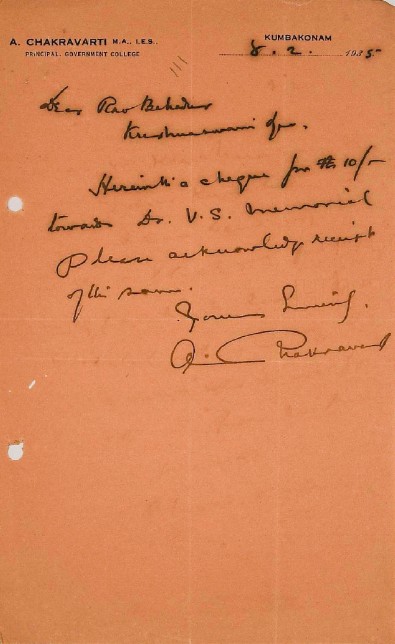 A. CHAKRAVARTI M.A., I.E.S.,
PRINCIPAL, GOVERNMENT COLLEGE
KUMBAKONAM
8.2.1935
Dear Rao Bahadur
Krishnaswami
Herewith a cheque for Rs 10/-
towards Dr. V. S. Memorial
Please acknowledge receipt
of the same.
Yours Sincerely.
A. Chakravarti